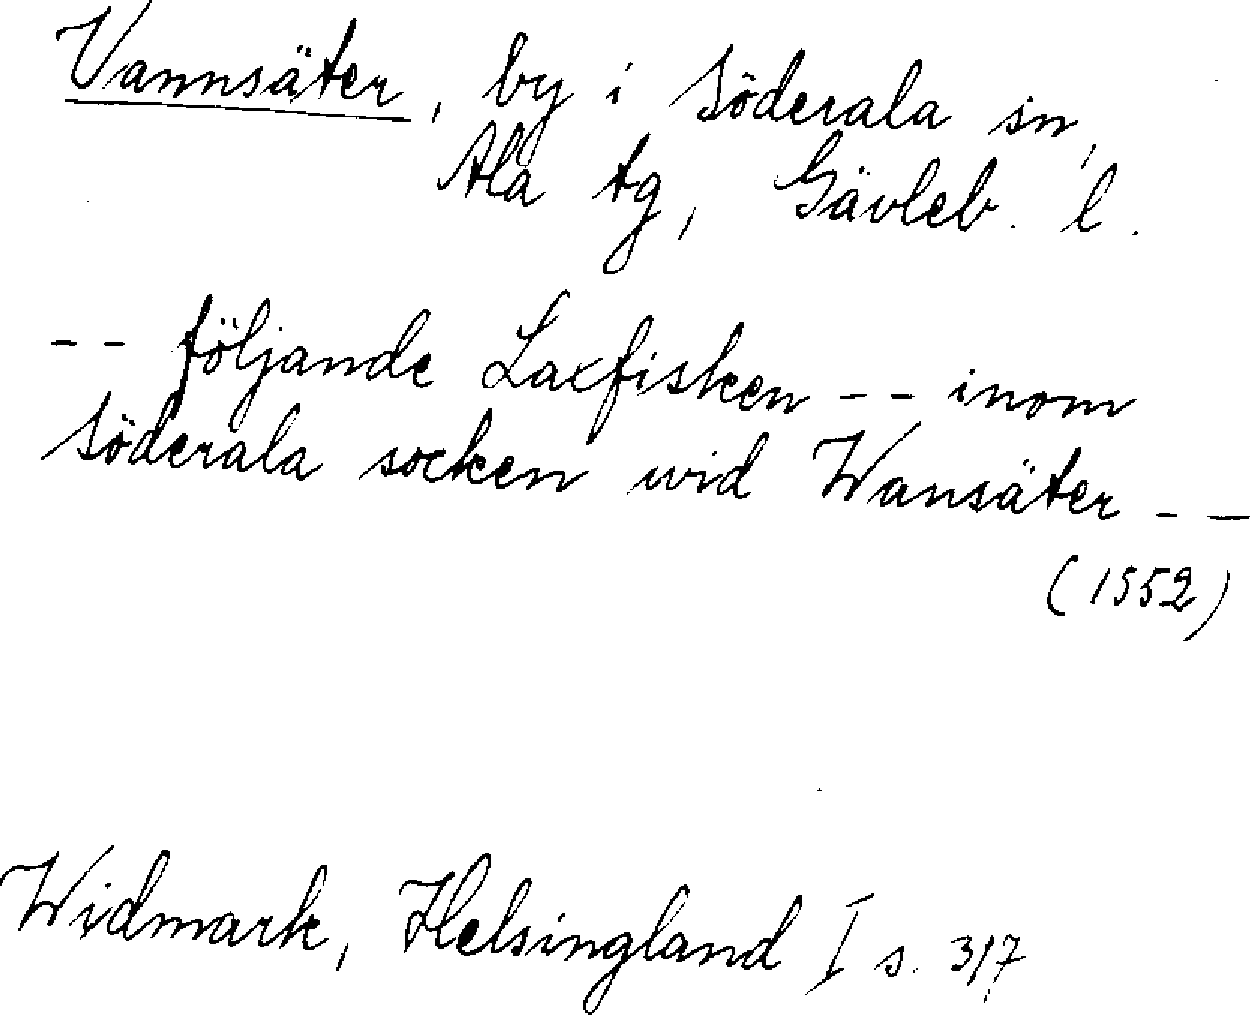 Vannsäter, by i Söderala sn,
Ala tg, Gävleb. l.
-- följande Laxfisken -- inom
Söderala socken wid Wansäter --
(1552)
Widmark, Helsingland I s. 317